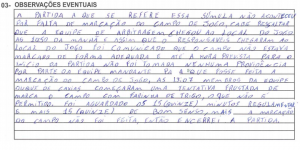 03- OBSERVAÇÕES EVENTUAIS
A PARTIDA A QUE SE REFERE ESSA SÚMULA NÃO ACONTECEU
POR FALTA DE MARCAÇÃO DO CAMPO DE JOGO, CABE RESSALTAR
QUE A EQUIPE DE ARBITRAGEM CHEGOU AO LOCAL DO JOGO
AS DA MANHÃ E ASSIM QUE OS RESPONSÁVEIS CHEGARAM AO
LOCAL DO JOGO FOI COMUNICADO QUE O CAMPO NÃO ESTAVA
MARCADO DE FORMA ADEQUADA E ATÉ A HORA PREVISTA PARA O
INÍCIO DA PARTIDA NÃO FOI TOMADA NENHUMA PROVIDÊNCIA
POR PARTE DA EQUIPE MANDANTE PARA QUE FOSSE FEITA A
MARCAÇÃO DO CAMPO DE JOGO, AS 15:07 MEMBRO DA EQUIPE
DUQUE DE CAXIAS COMEÇARAM UMA TENTATIVA FRUSTADA DE
MARCA O CAMPO COM FARINHA DE TRIGO, O QUE NÃO FOI
PERMITIDO. FOI AGUARDADO OS 15 (QUINZE) MINUTOS REGULAMENTARES
E MAIS 15 (QUINZE) DE BOM SENSO, MAIS A MARCAÇÃO
DO CAMPO NÃO FOI FEITA, ENTÃO ENCERREI A PARTIDA.